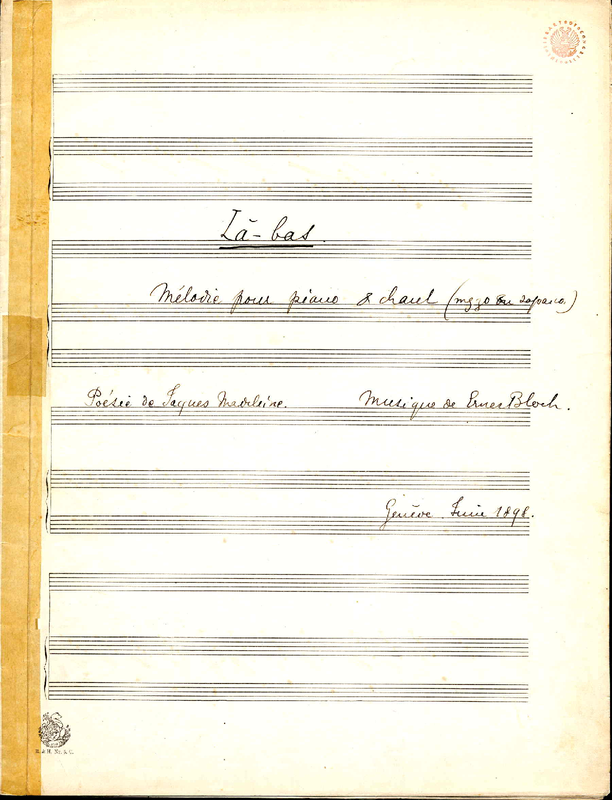 Là-bas.
Mélodie pour piano & chant (mezzo ou soprano.)
Poésie de Jaques Madeleine. Musique de Ernest Bloch.
Genève. Juin 1898.
B. & H. Nr. 5. C.